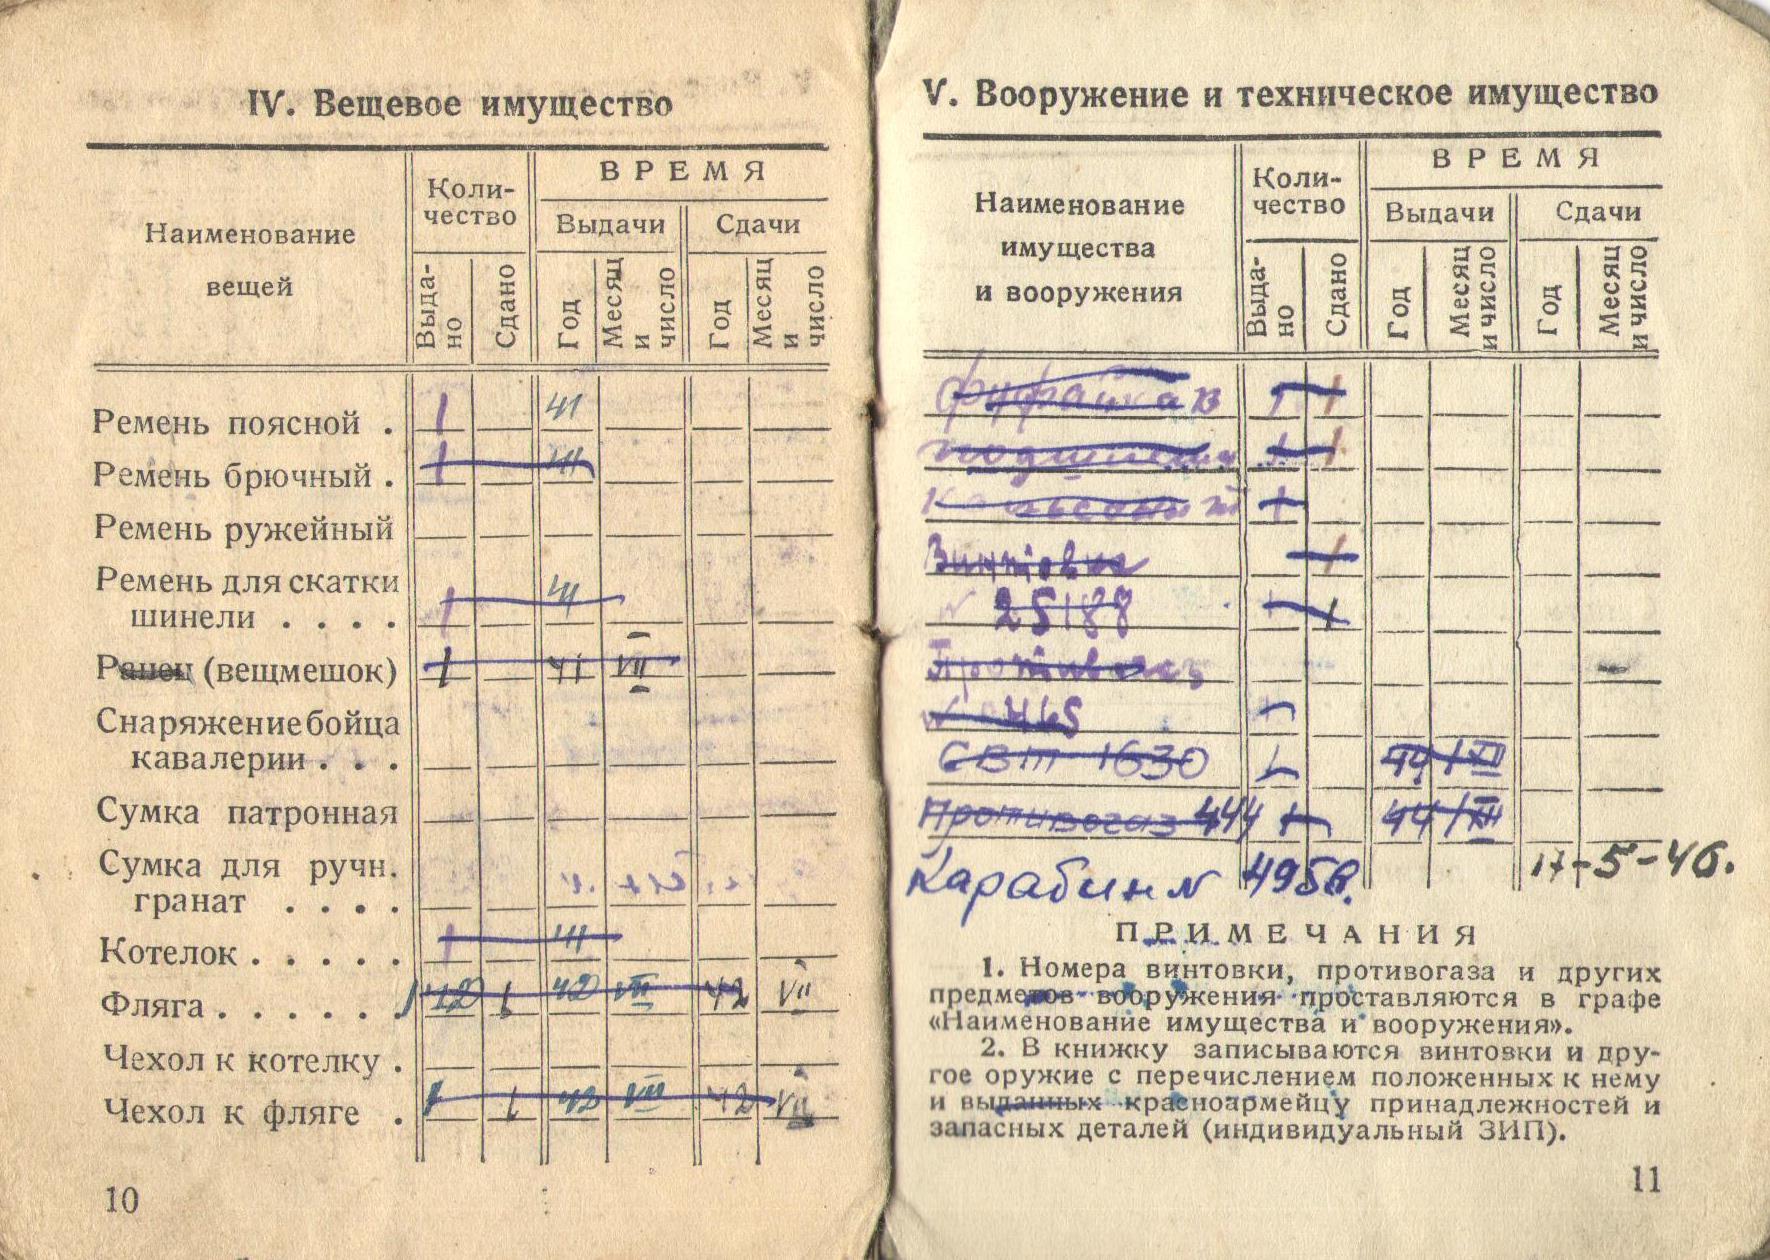 IV. Вещевое имущество
Наименование
вещей
Коли-
чество
ВРЕМЯ
Выдачи
Сдачи
Выда-
но
Сдано
Год
Месяц
и
число
Год
Месяц
и
число
Ремень поясной . 1 41
Ремень брючный . 1 41
Ремень ружейный
Ремень для скатки
шинели . . . . 1 41
Ранец (вещмешок) 1 41 VII
Снаряжение бойца
кавалерии . . .
Сумка патронная
Сумка для ручн.
гранат . . . .
Котелок . . . . . 1 41
Фляга . . . . . . 1 42 VII 42 VII
Чехол к котелку .
Чехол к фляге . 1 1 42 VII 42 VII
10
V. Вооружение и техническое имущество
Наименование
имущества
и вооружения
Коли-
чество
ВРЕМЯ
Выдачи
Сдачи
Выда-
но
Сдано
Год
Месяц
и число
Год
Месяц
и число
фуфайка 1 1
1 1
Кальсоны 1
Винтовка 1
№ 25188 1 1
Противогаз
465 1
СВТ 1630 1 44 XII
Противогаз 444 1 44 XII
Карабин № 4958. 17-5-46.
ПРИМЕЧАНИЯ
1. Номера винтовки, противогаза и других
предметов вооружения проставляются в графе
«Наименование имущества и вооружения».
2. В книжку записываются винтовки и дру-
гое оружие с перечислением положенных к нему
и выданных красноармейцу принадлежностей и
запасных деталей (индивидуальный ЗИП).
11